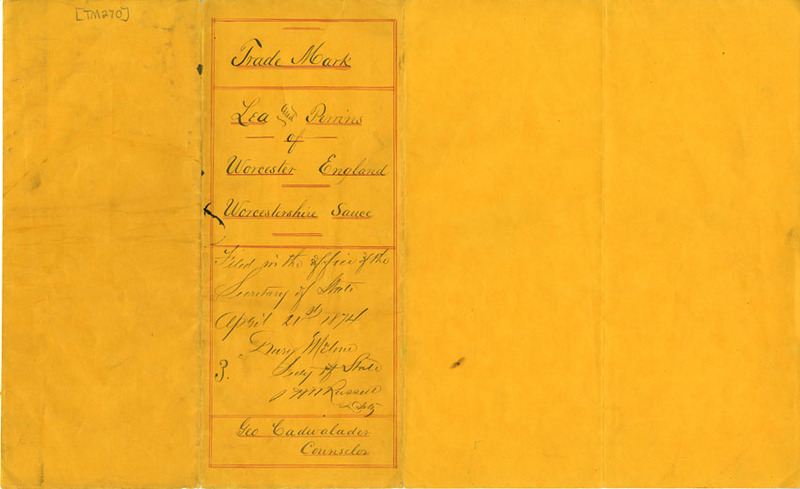 [TM270]
Trade Mark
Lea and Perrins
of
Worcester England
Worcestershire Sauce
Filed in the office of the
Secretary of State
April 21st 1874
Drury Melone
3. Secty of State
Russell
Dpty
Geo Cadwalader
Counselor